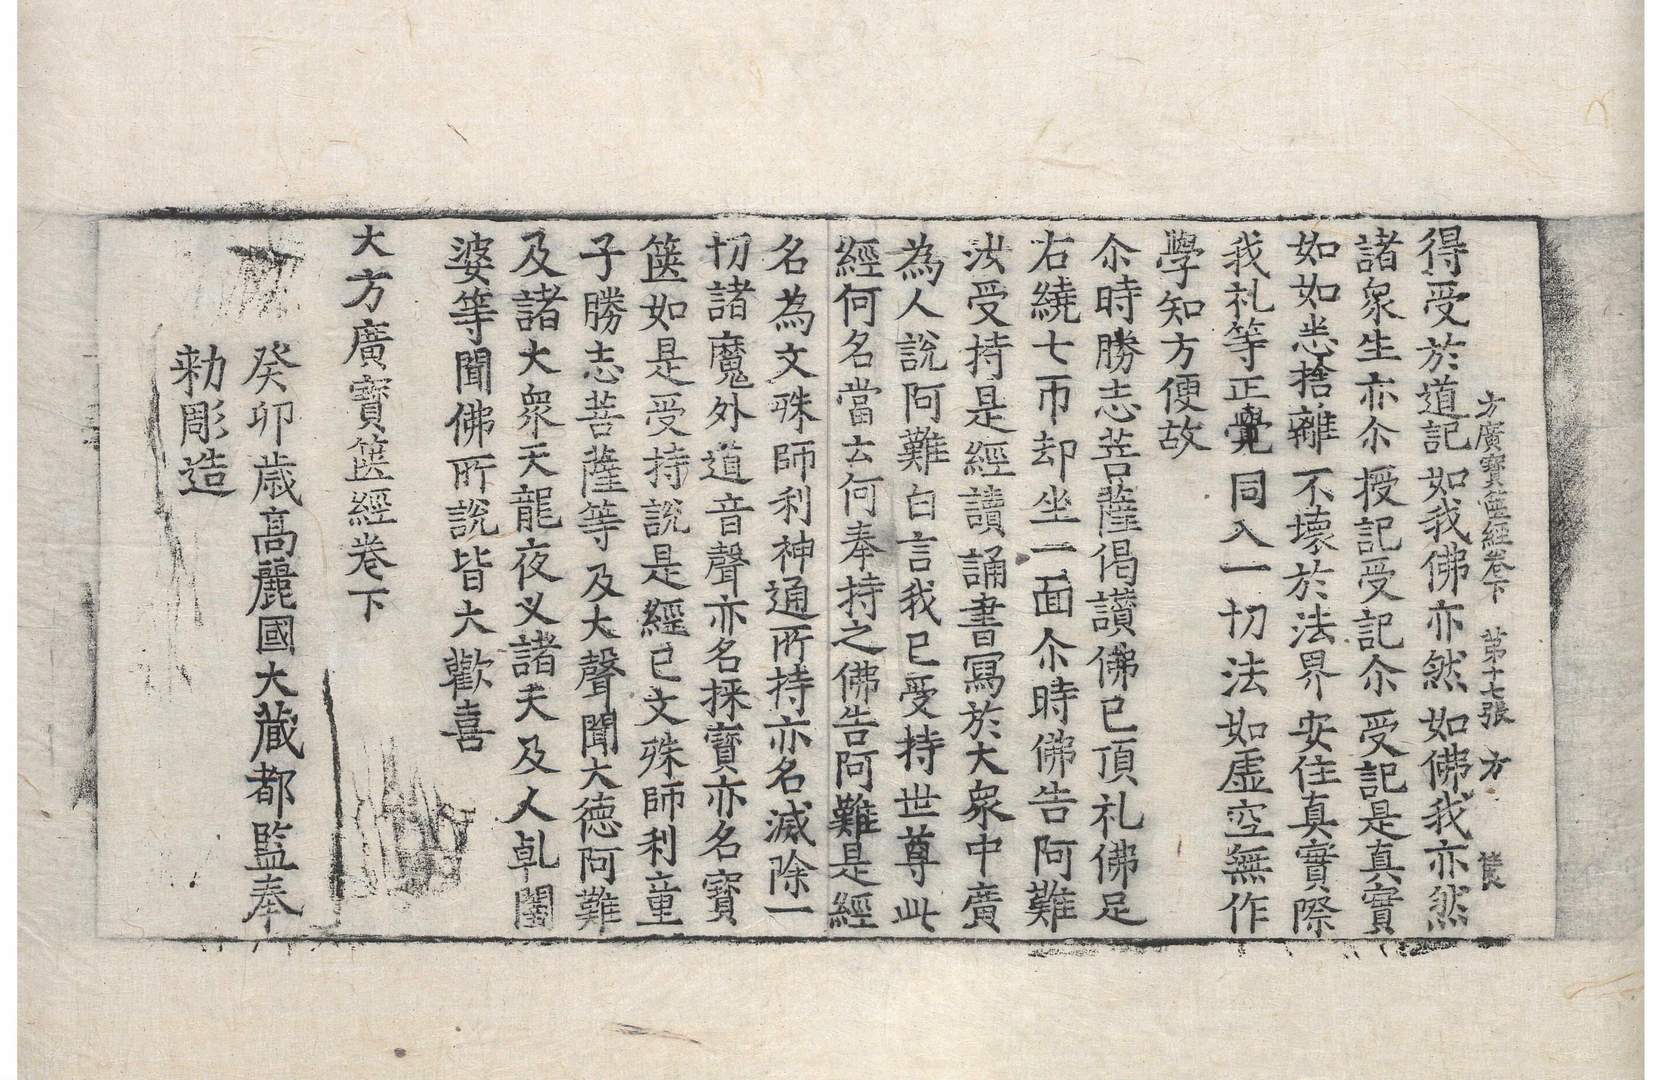 方廣寶篋經卷下 第十七張 方
得受於道記 如我佛亦然 如佛我亦然
諸衆生亦尒 授記受記尒 受記是真實
如如悉捨離 不壞於法界 安住真實際
我礼等正覺 同入一切法 如虛空無作
學知方便故
尒時勝志菩薩偈讃佛已頂礼佛足
右繞七帀却坐一面尒時佛告阿難
汝受持是經讀誦書寫於大衆中廣
為人說阿難白言我已受持世尊此
經何名當云何奉持之佛告阿難是經
名為文殊師利神通所持亦名滅除一
切諸魔外道音聲亦名採寶亦名寶
篋如是受持說是經已文殊師利童
子勝志菩薩等及大聲聞大德阿難
及諸大衆天龍夜叉諸天及人乹闥
婆等聞佛所說皆大歡喜
大方廣寶篋經卷下
癸卯歲高麗國大藏都監奉
勑彫造